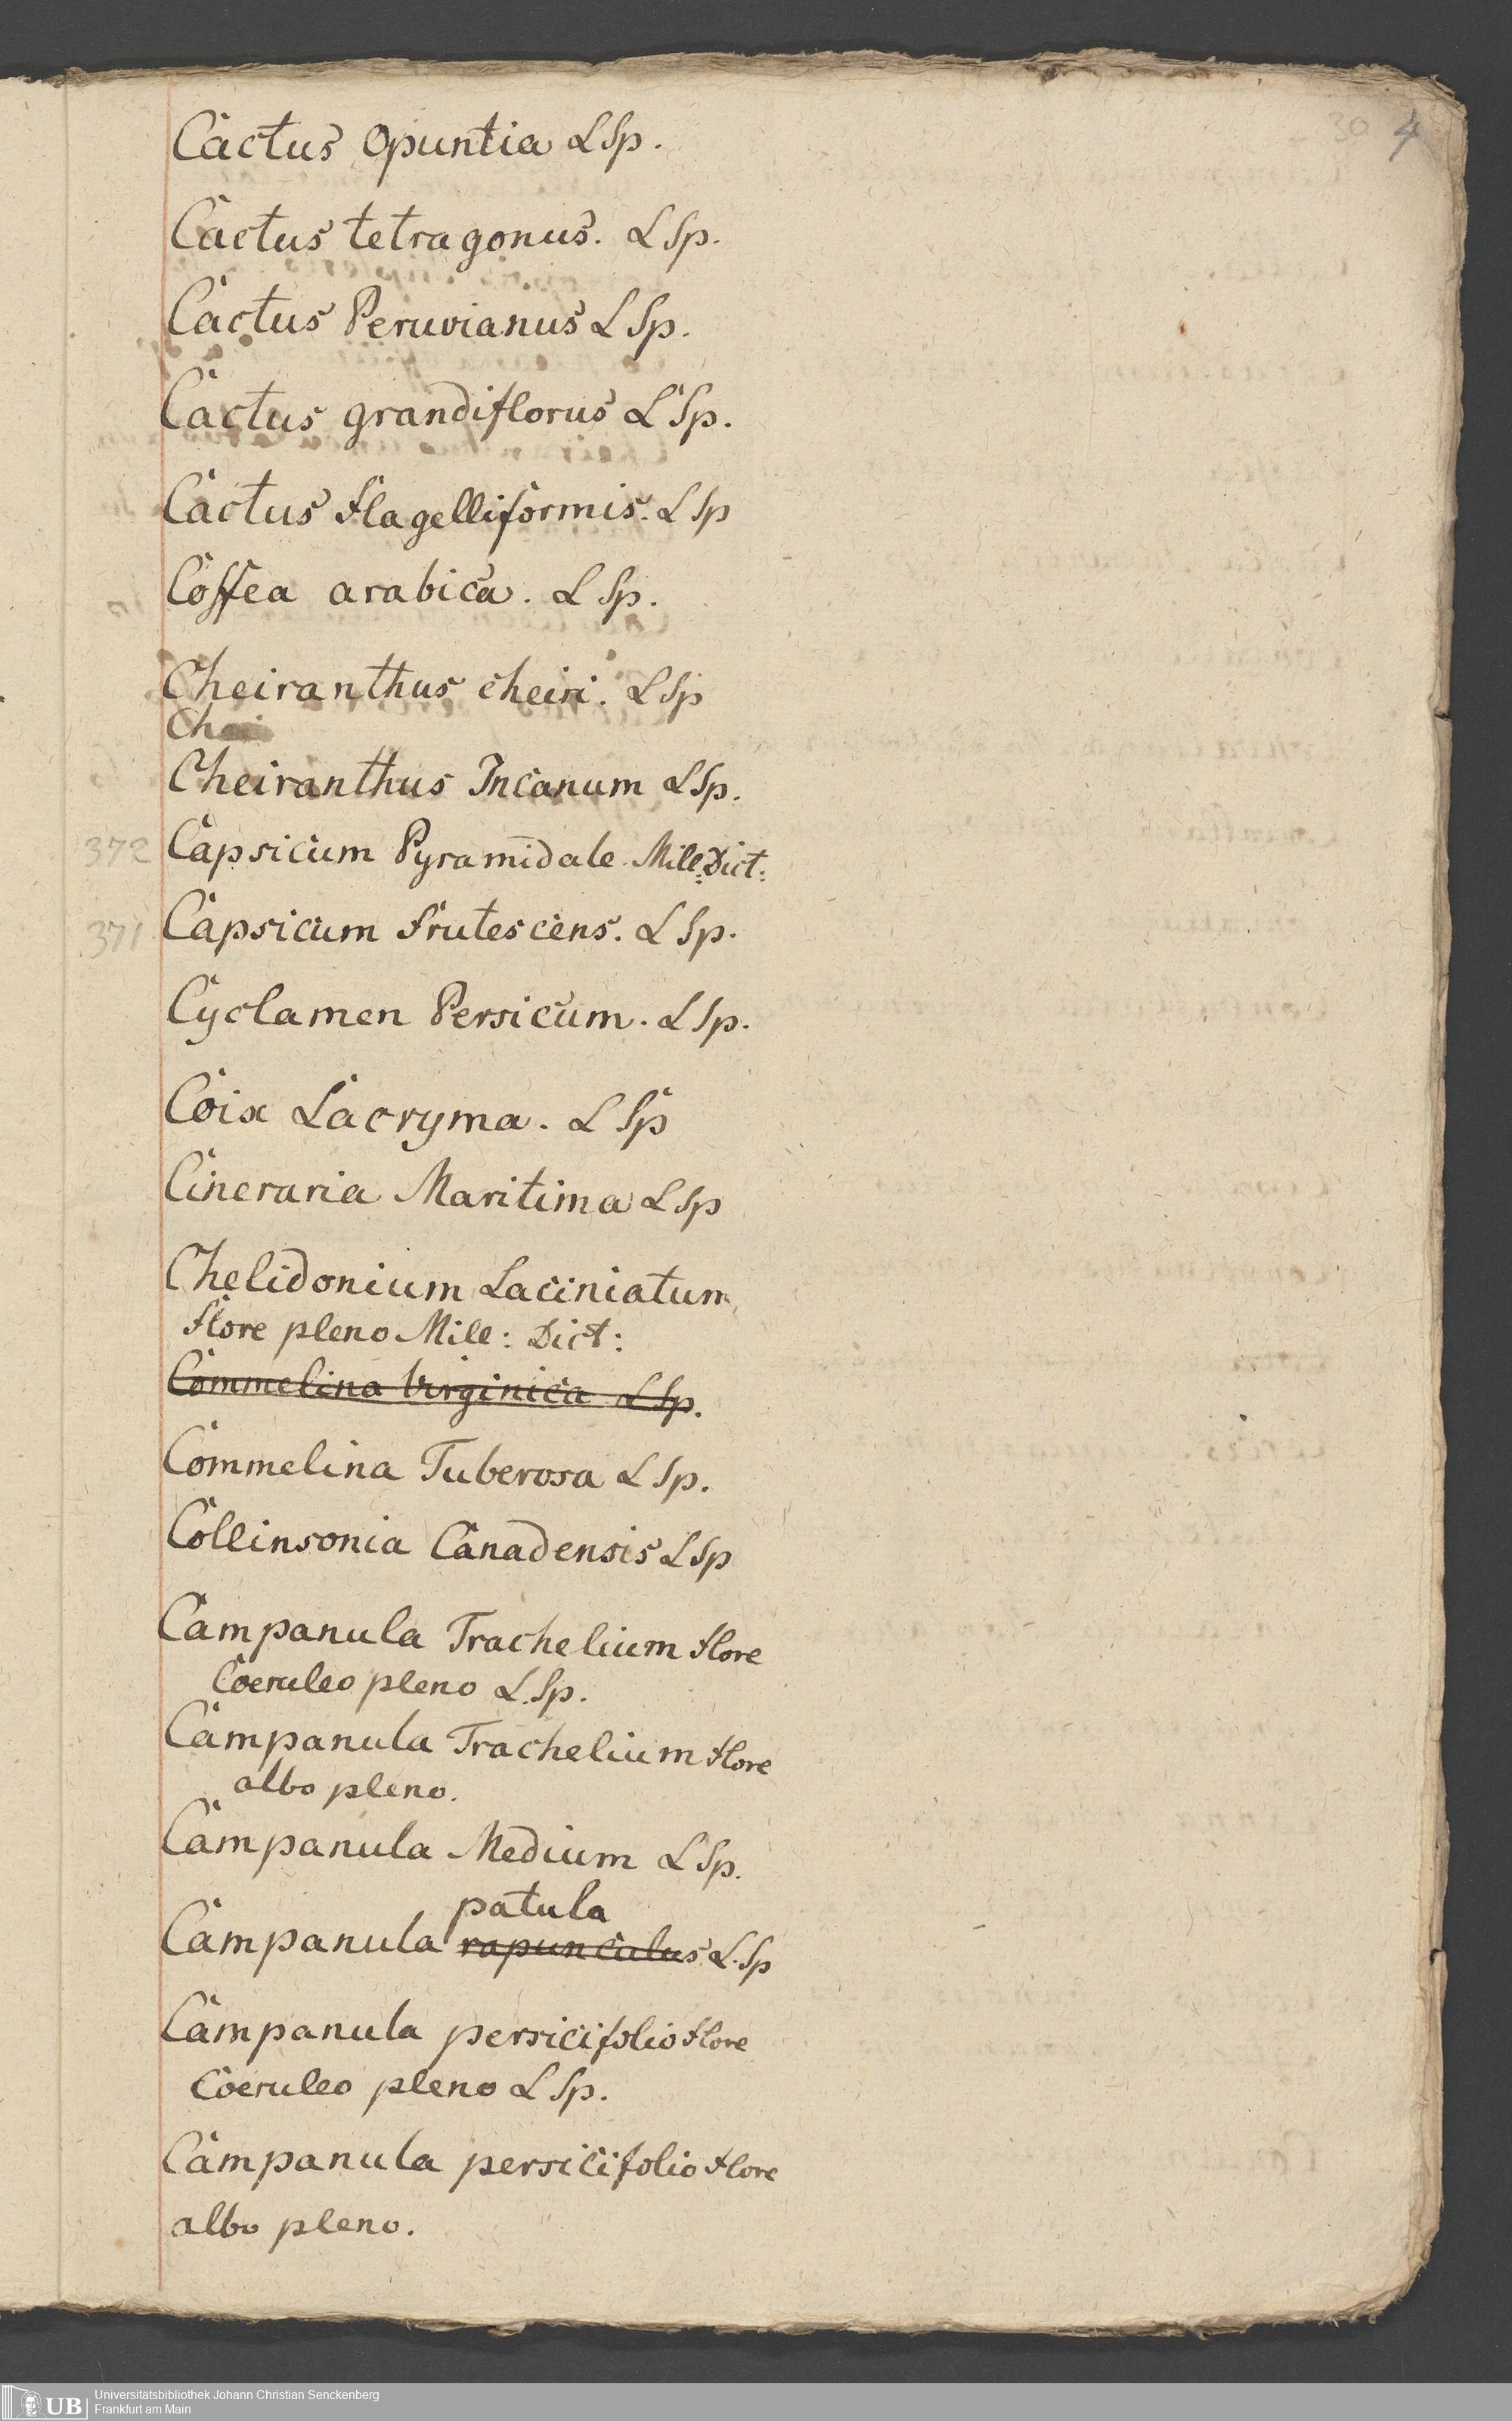 30 4
Cactus Opuntia L Sp.
Cactus tetragonus. L Sp.
Cactus Peruvianus L Sp.
Cactus grandiflorus L Sp.
Cactus flagelliformis. L Sp
Coffea arabica. L Sp.
Cheiranthus cheiri. L Sp
Chei
Cheiranthus Incanum L Sp.
372 Capsicum Pyramidale Mill: Dict:
371 Capsicum frutescens. L Sp.
Cyclamen Persicum. L Sp.
Coix Lacryma. L Sp
Cineraria Maritima L Sp
Chelidonium Laciniatum
flore pleno Mill: Dict:
Commelina Virginica L Sp.
Commelina Tuberosa L Sp.
Collinsonia Canadensis L Sp
Campanula Trachelium flore
Coeruleo pleno L. Sp.
Campanula Trachelium flore
albo pleno.
Campanula Medium L Sp.
patula
Campanula rapunculus L. Sp
Campanula persicifolio flore
Coeruleo pleno L Sp.
Campanula persicifolio flore
albo pleno.
UB Universitätsbibliothek Johann Christian Senckenberg
Frankfurt am Main